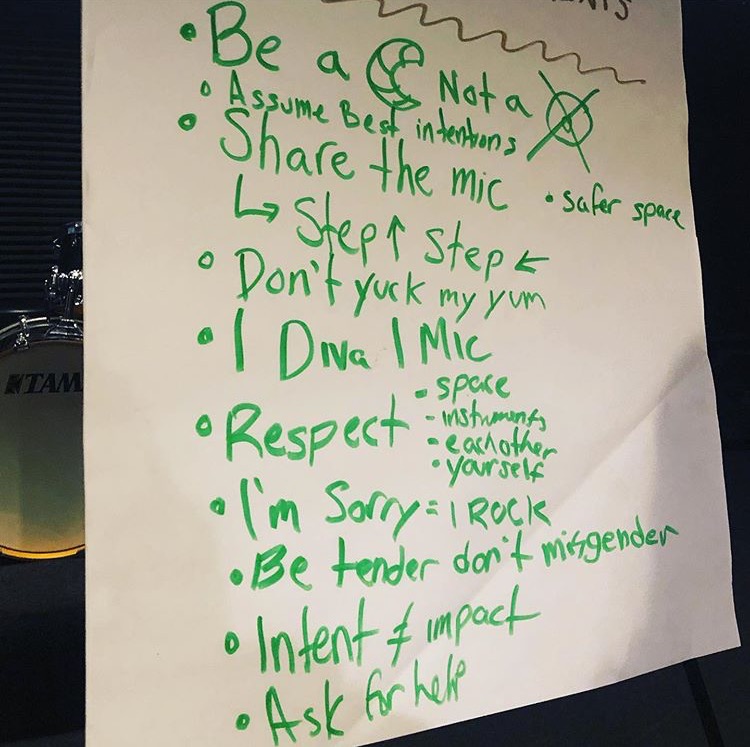 • Be a Not a
• Assume Best intentions
• Share the mic
• safer space
↳ Step ↑ step ←
• Don't yuck my yum
• 1 Diva 1 Mic
• Respect
- space
- instruments
- eachother
• yourself
• I'm Sorry = I ROCK
• Be tender don't misgender
• Intent ≠ impact
• Ask for help
TAM